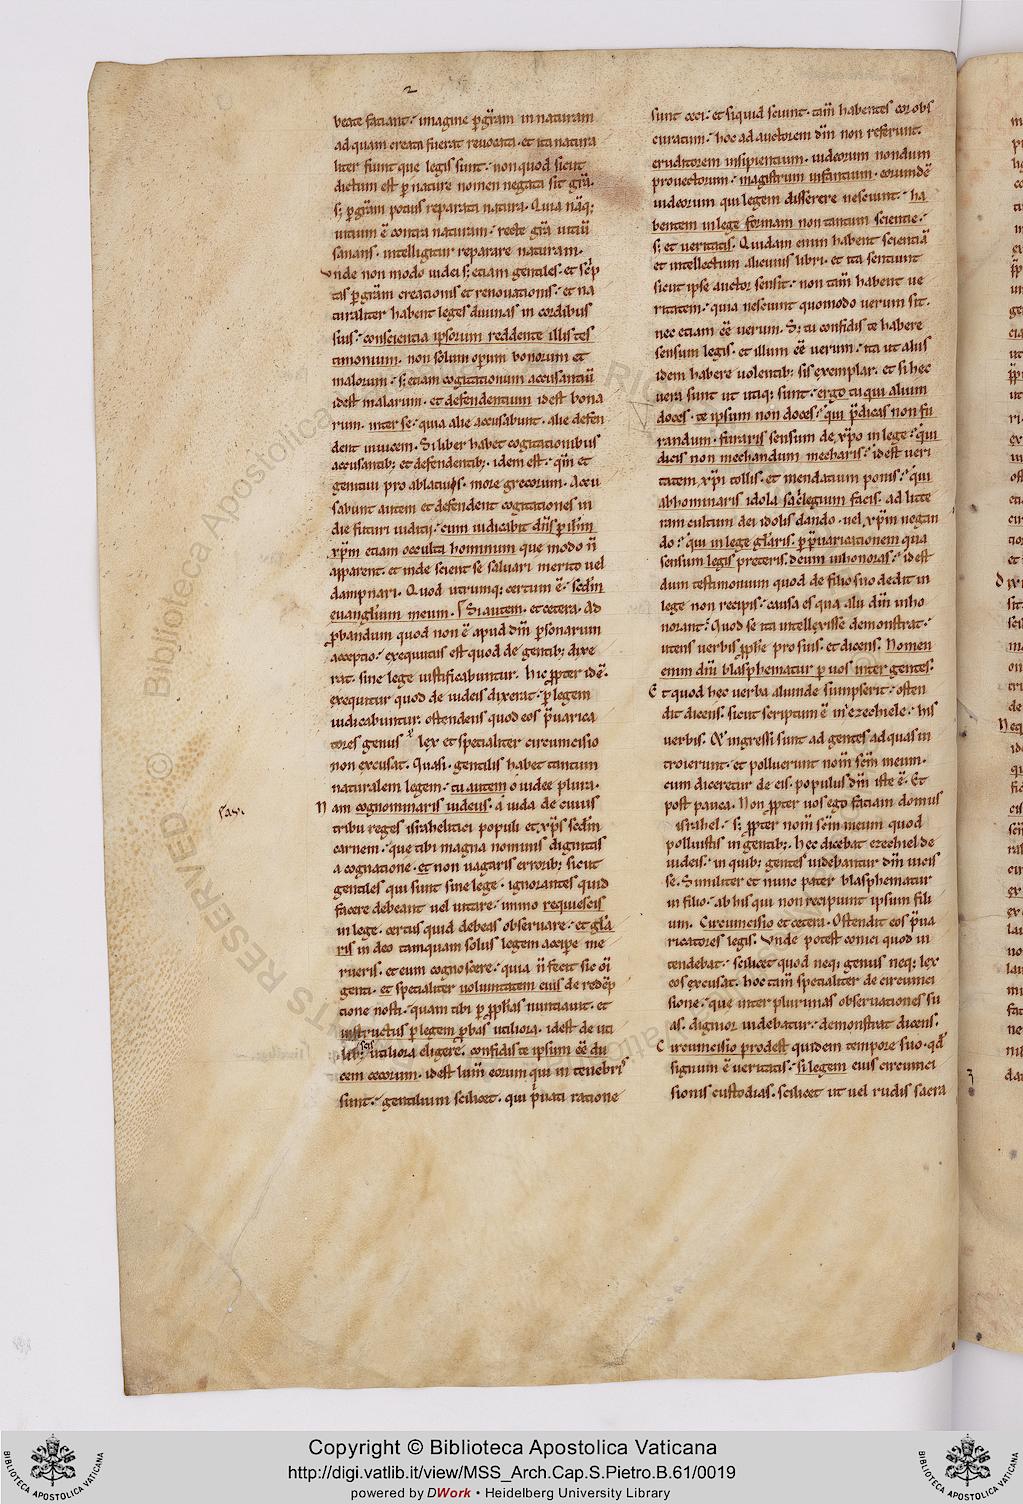 2
beate faciant.' imagine p gr̄am in naturam
ad quam creata fuerat reuocata. et ita natura
liter fiunt que legis sunt.' non quod sicut
dictum est p nature nomen negata sit gr̄a.
s; p gr̄am potius reparata natura. Quia nāq;
uitium ē contra naturam.' recte gr̄a uitiū
sanans. intelligitur reparare naturam.
vnde non modo iudei s; etiam gentiles. et
p gr̄am creationis et renouationis.' et na
turaliter habent leges diuinas in cordibus
suis.' conscientia ipsorum reddente illis tes
timonium. non solum operum bonorum et
malorum.' s; etiam cogitationum accusantiū
idest malarum. et defendentium idest bona
rum. inter se.' quia alie accusabunt. alie defen
dent inuicem. Si liber habet cogitationibus
accusantib; et defendentib;. idem est.' qm̄ et
genitiui pro ablatiuis. more grecorum. Accu
sabunt autem et defendent cogitationes in
die futuri iuditij.' cum iudicabit dn̄s p ih̄m
xp̄m etiam occulta hominum que modo n̄
apparent. et inde scient se saluari merito uel
dampnari. Quod utrumq; certum ē.' scdm̄
euanglium meum. Si autem. et cetera. ad
p̄bandum quod non ē apud dm̄ p̱sonarum
acceptio.' exequutus est quod de gentib; dixe
rat. sine lege iustificabuntur. hic propter idē.
exequitur quod de iudeis dixerat.' p legem
iudicabuntur. ostendens quod eos p̄uarica
tores genus lex et specialiter circumcisio
non excusat. Quasi. gentilis habet tantum
naturalem legem.' tu autem o iudee plura.
Nam cognominaris iudeus. a iuda de cuius
tribu reges israhelitici populi et xp̄s scdm̄
carnem.' que tibi magna nominis dignitas
a cognatione. et non uagaris errorib; sicut
gentiles qui sunt sine lege. ignorantes quid
facere debeant uel uitare.' immo requiescis
in lege. certus quid debeas obseruare.' et gl̄a
ris in deo tamquam solus legem accipe me
rueris. et eum cognoscere.' quia n̄ fecit sic oi
genti. et specialiter uoluntatem eius de redēp
tione nosti.' quam tibi p prophetas nuntiauit. et
instructus p legem p̄bas utiliora. idest de uti
lib; scis utiliora eligere. confidis te ipsum ēē du
cem cecorum. idest lum̄ eorum qui in tenebris
sunt.' gentilium scilicet. qui p̄uati ratione
sunt ceci.' et siquid sciunt. tam̄ habentes cor obs
curatum.' hoc ad auctorem dm̄ non referunt.
eruditorem insipientium. iudeorum nondum
prouectorum.' magistrum infantium. eorundē
iudeorum qui legem disserere nesciunt.' ha
bentem in lege formam non tantum scientie.'
s; et ueritatis. Quidam enim habent scientiā
et intellectum alicuius libri. et ita sentiunt
sicut ipse auctor sensit.' non tam̄ habent ue
ritatem.' quia nesciunt quomodo uerum sit.
nec etiam ēē uerum. S; tu confidis te habere
sensum legis. et illum ēē uerum.' ita ut aliis
idem habere uolentib; sis exemplar. et si hec
uera sunt ut utiq; sunt.' ergo tu qui alium
doces. te ipsum non doces.' qui p̄dicas non fu
randum. furaris sensum de xp̄o in lege.' qui
dicis non mechandum mecharis.' idest ueri
tatem xp̄i tollis. et mendatium ponis.' qui
abhominaris idola sacrilegium facis. ad litte
ram cultum dei idolis dando. uel xp̄m negan
do.' qui in lege gl̄aris. p p̄uaricationem qua
sensum legis preteris. deum inhonoras.' idest
dum testimonium quod de filio suo dedit in
lege non recipis.' causa es qua alii dm̄ inho
norant.' Quod se ita intellexisse demonstrat.'
utens uerbis prophe pro suis. et dicens. Nomen
enim dm̄ blasphematur p uos inter gentes.'
Et quod hec uerba aliunde sumpserit.' osten
dit dicens. sicut scriptum ē in ezechiele.' his
uerbis. Ingressi sunt ad gentes ad quas in
troierunt.' et polluerunt nom̄ sc̄m meum.
cum diceretur de eis. populus dm̄ iste ē. Et
post pauca. Non propter uos ego faciam domus
israhel.' s; propter nom̄ sc̄m meum quod
polluistis in gentib;. hec dicebat ezechiel de
iudeis.' in quib; gentes uidebantur dm̄ uicis
se. Similiter et nunc pater blasphematur
in filio.' ab his qui non recipiunt ipsum fili
um. Circumcisio et cetera. Ostendit eos p̄ua
ricatores legis. vnde potest conici quod in
tendebat.' scilicet quod neq; genus neq; lex
eos excusat. hoc tam̄ specialiter de circumci
sione.' que inter plurimas obseruationes su
as. dignior uidebatur.' demonstrat dicens.
Circumcisio prodest quidem tempore suo. qd̄
signum ē ueritatis.' si legem eius circumci
sionis custodias. scilicet ut uel rudis sacra
Copyright © Biblioteca Apostolica Vaticana
http://digi.vatlib.it/view/MSS_Arch.Cap.S.Pietro.B.61/0019
powered by DWork • Heidelberg University Library
BIBLIOTECA APOSTOLICA VATICANA
BIBLIOTECA APOSTOLICA VATICANA